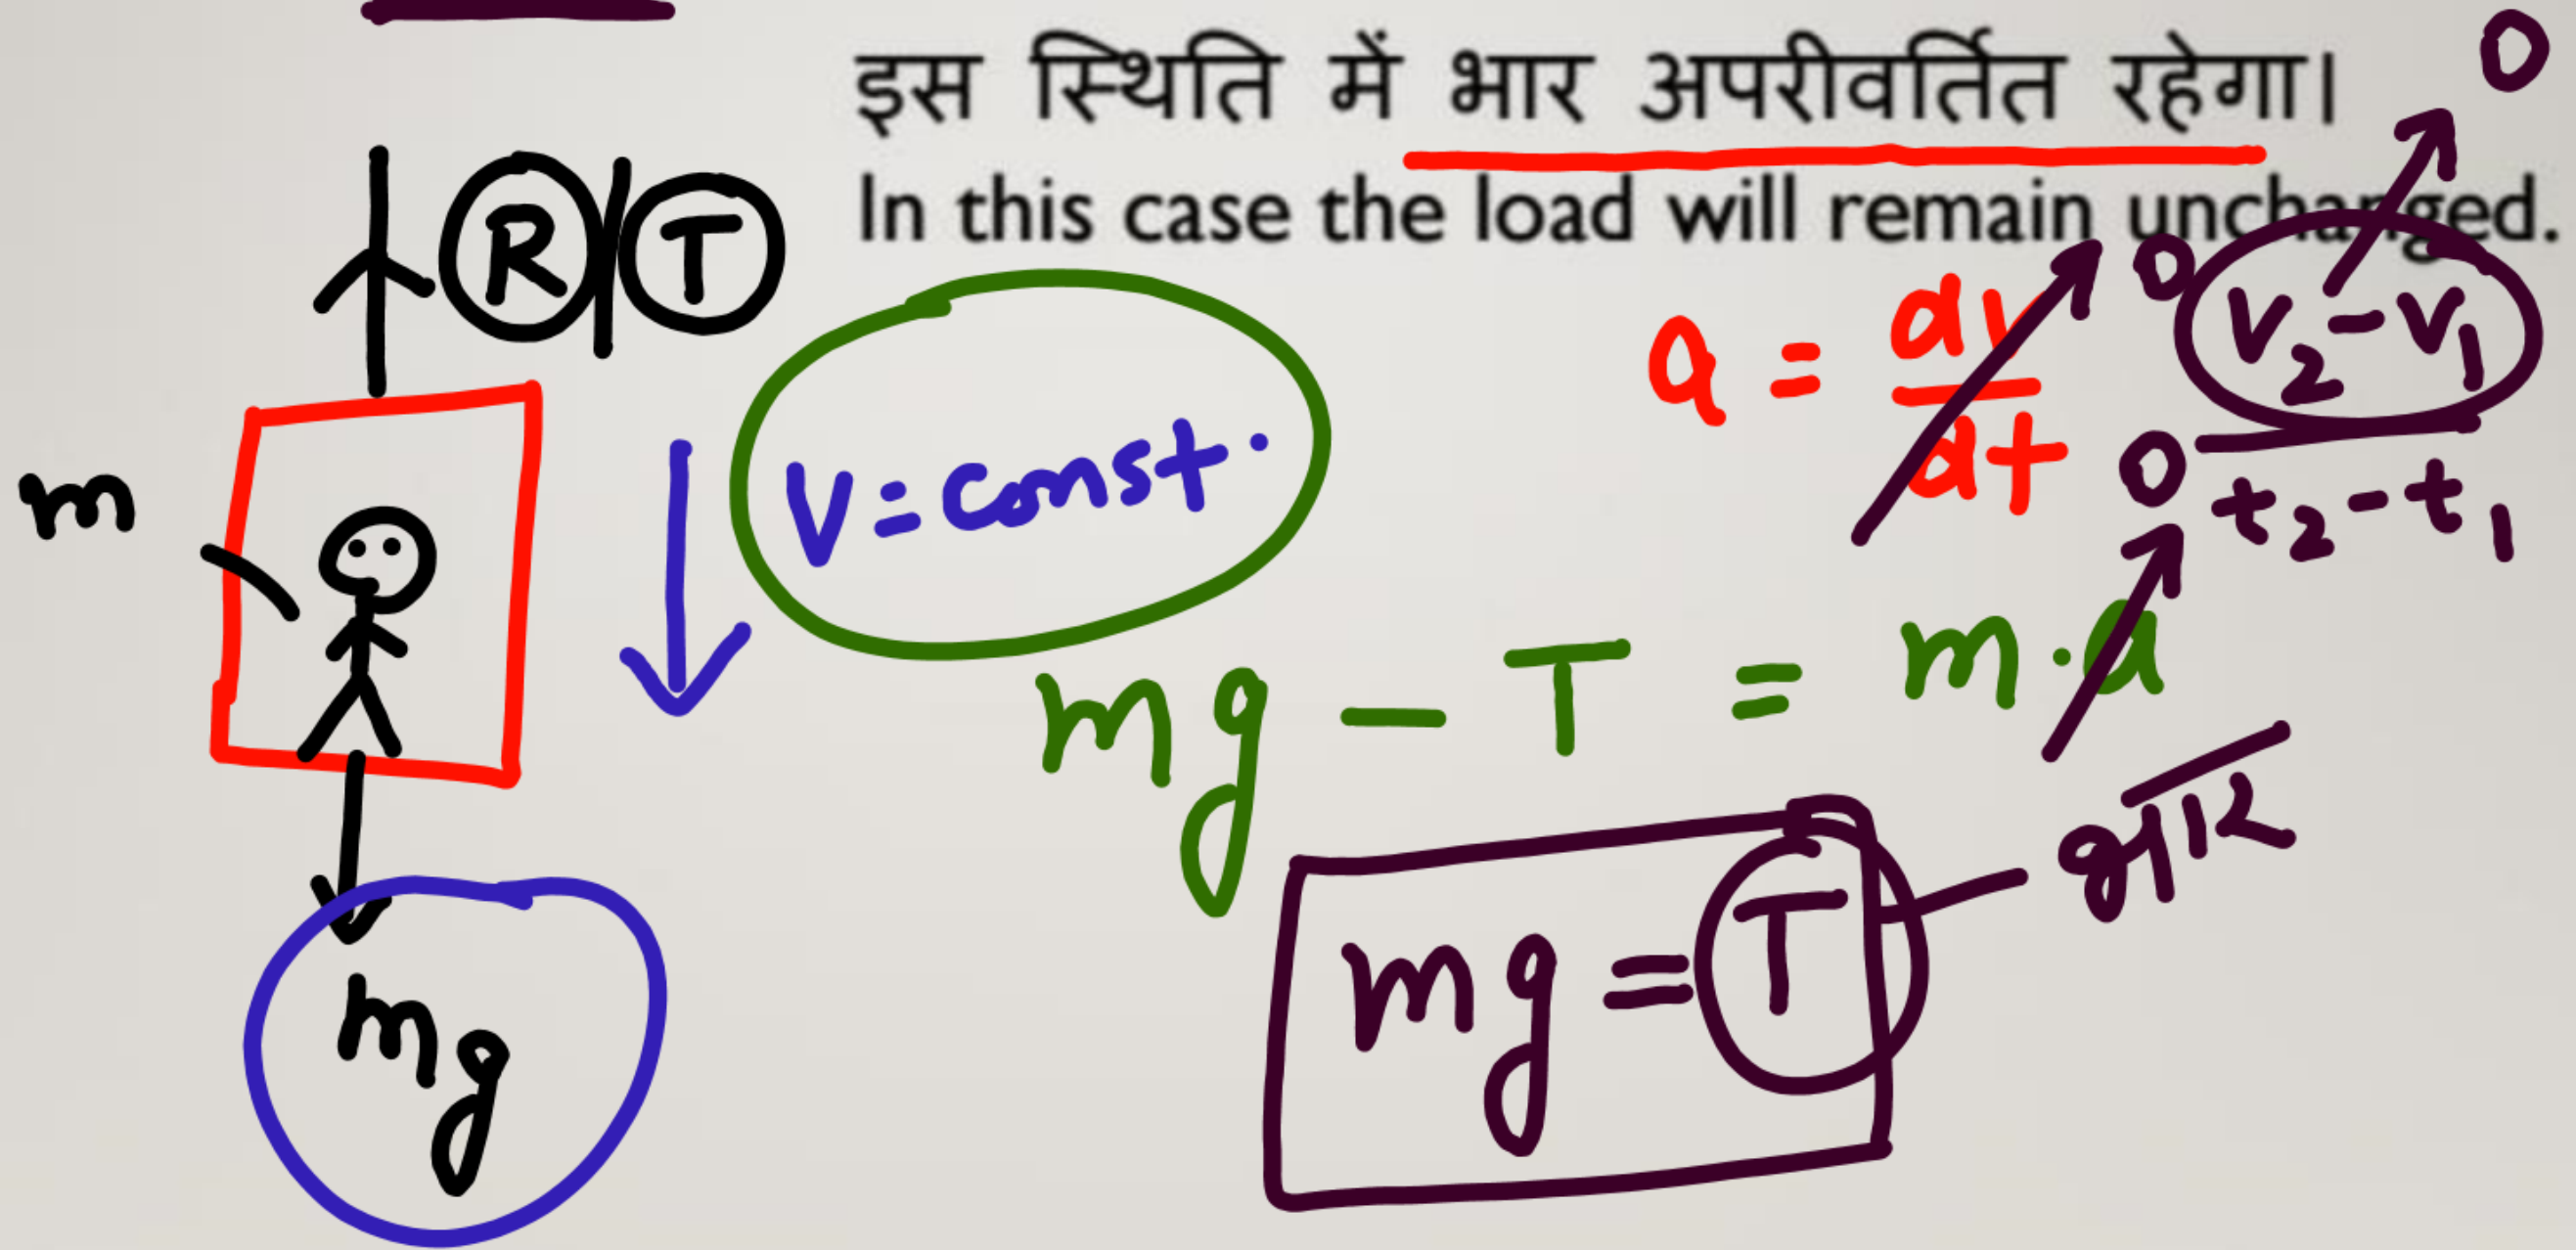 इस स्थिति में भार अपरीवर्तित रहेगा।
In this case the load will remain unchanged.
0
R | T
m
V = const.
a = dv/dt
0
V₂ - V₁
0
t₂ - t₁
mg - T = m.a
भार
mg = T
mg